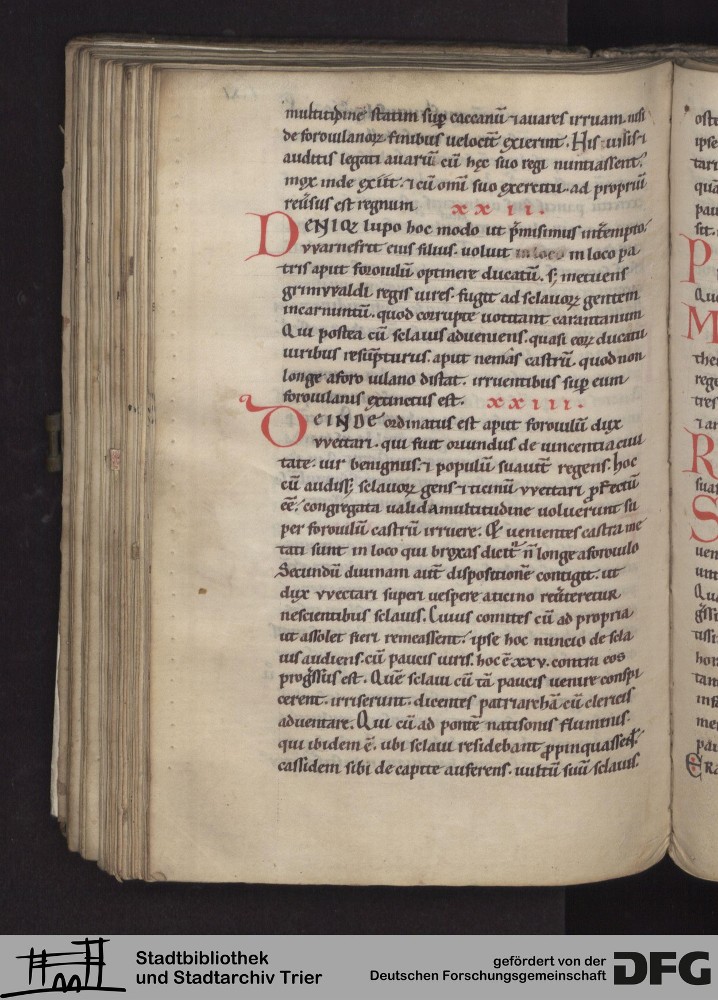 multitudinē statim sup̄ caccanū ⁊ auares irruam. nisi
de foroiulanoꝝ finibus velocit̄ exierint. His uisis ⁊
auditis legati auarū cū hęc suo regi nuntiassent.
mox inde exiit. ⁊ cū omī suo exercitu. ad propriū
reũsus est regnum
xxii.
DENIQꝫ lupo hoc modo ut p̄misimus intempto.
vvarnefrit eius filius. voluit in loco in loco pa
tris aput foroiulū optinere ducatū. sꝫ metuens
grimvvaldi regis vires. fugit ad sclauoꝝ gentem
incarnuntū. quod corrupte uotitant carantanum
Qui postea cū sclauis adueniens. quasi eoꝝ ducatū
uiribus resūpturus. aput nemas castrū. quod non
longe aforo iulano distat. irruentibus sup̄ eum
foroiulanis extinctus est.
xxiii.
DEINDE ordinatus est aput foroiulū dux
vvectari. qui fuit oriundus de vincentia ciui
tate. vir benignus. ⁊ populū suauit̄ regens. hoc
cū audissꝫ sclauoꝝ gens. ⁊ ticinū vvectari ꝓfectū
eē. congregata valida multitudine uoluerunt su
per foroiulū castrū irruere. Et uenientes castra me
tati sunt in loco qui broxas dicit̄ n̄ longe aforoiulo
Secundū diuinam aut̄ dispositionē contigit. ut
dux vvectari superi uespere aticino reũteretur
nescientibus sclauis. Cuius comites cū ad propria
ut assolet fieri remeassent. ipse hoc nuncio de scla
uis audiens. cū paucis uiris. hoc ē xxv. contra eos
progr̄sus est. Quē sclaui cū tā paucis uenire conspi
cerent. irriserunt. dicentes patriarchā cū clericis
aduentare. Qui cū ad pontē natisonis fluminis.
qui ibidem ē. ubi sclaui residebant ꝓpinquasset.
cassidem sibi de capite auferens. uultū suū sclauis.
Stadtbibliothek
und Stadtarchiv Trier
gefördert von der
Deutschen Forschungsgemeinschaft
DFG